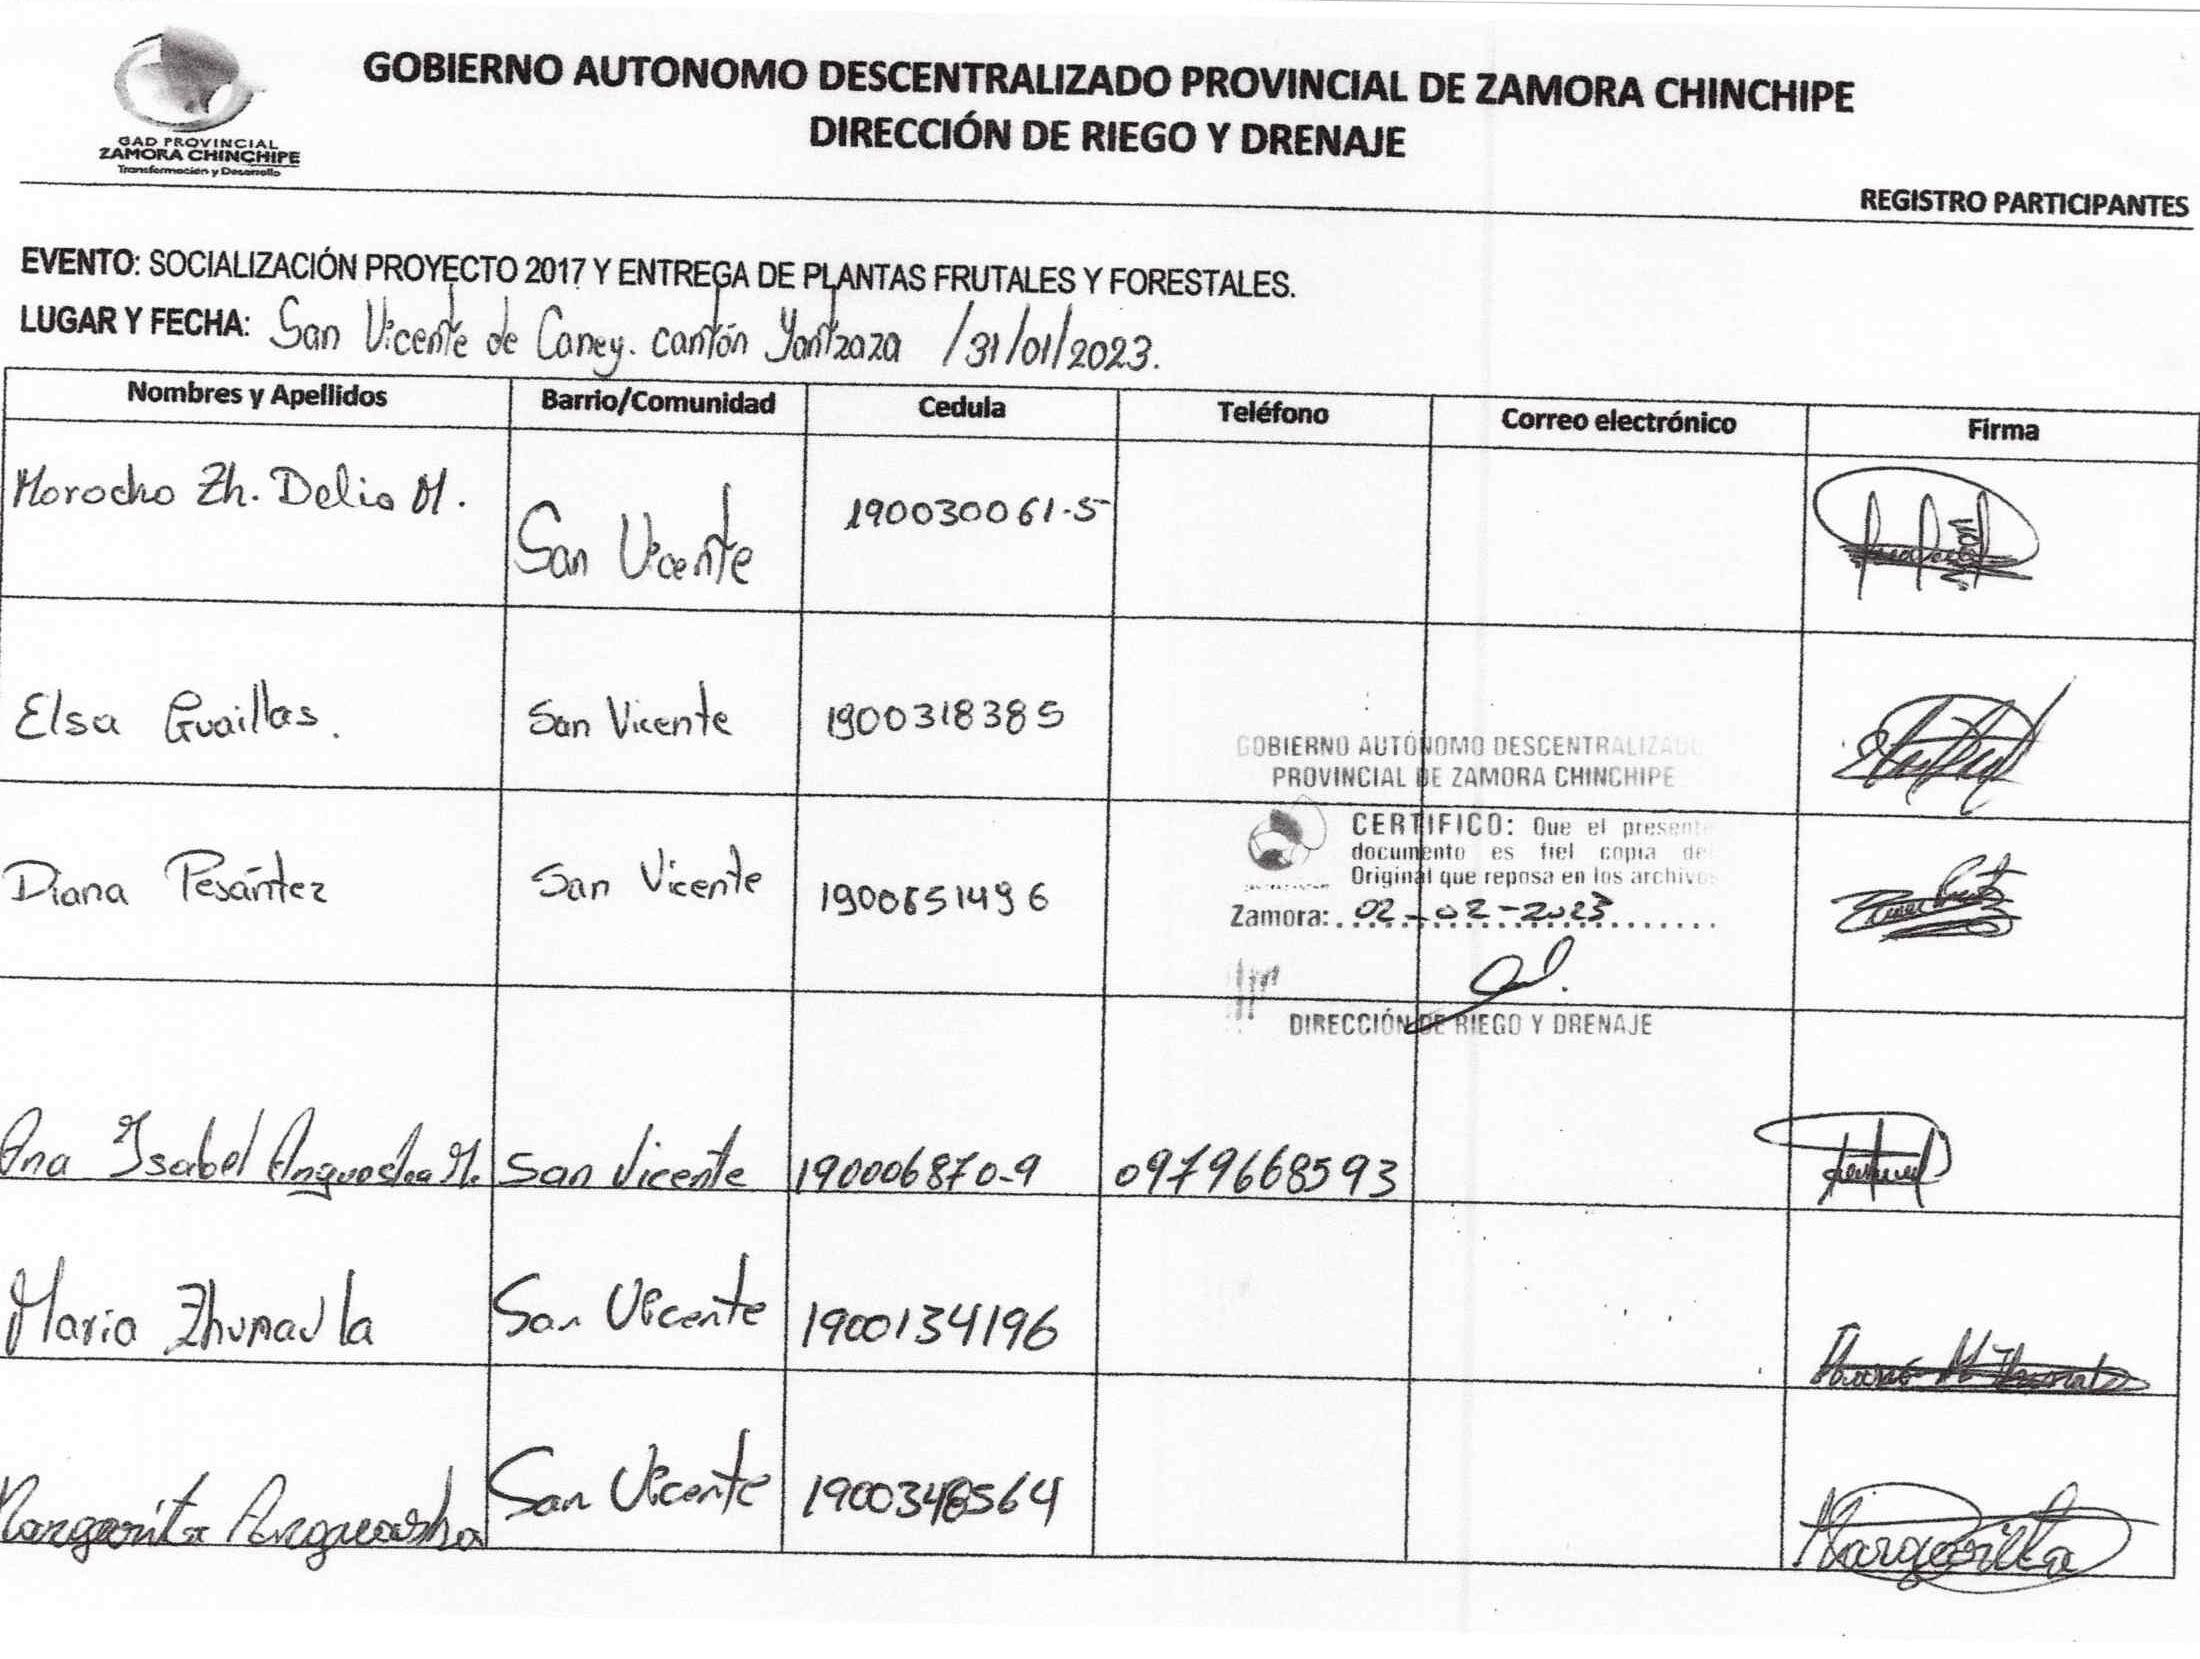 GAD PROVINCIAL
ZAMORA CHINCHIPE
Transformación y Desarrollo
GOBIERNO AUTONOMO DESCENTRALIZADO PROVINCIAL DE ZAMORA CHINCHIPE
DIRECCIÓN DE RIEGO Y DRENAJE
REGISTRO PARTICIPANTES
EVENTO: SOCIALIZACIÓN PROYECTO 2017 Y ENTREGA DE PLANTAS FRUTALES Y FORESTALES.
LUGAR Y FECHA: San Vicente de Caney. cantón Yantzaza /31/01/2023.
Nombres y Apellidos Barrio/Comunidad Cedula Teléfono Correo electrónico Firma
Morocho Zh. Delia M. San Vicente 190030061-5
Elsa Guaillas. San Vicente 1900318385
GOBIERNO AUTÓNOMO DESCENTRALIZADO
PROVINCIAL DE ZAMORA CHINCHIPE
CERTIFICO: Que el presente
documento es fiel copia del
Original que reposa en los archivos
Diana Pesántez San Vicente 1900651496
Zamora: 02-02-2023
DIRECCIÓN DE RIEGO Y DRENAJE
Ana Isabel Anguasha M. San Vicente 190006870-9 0979668593
Maria Zhunaula San Vicente 1900134196
Margarita Anguasha San Vicente 1900348564 Margarita